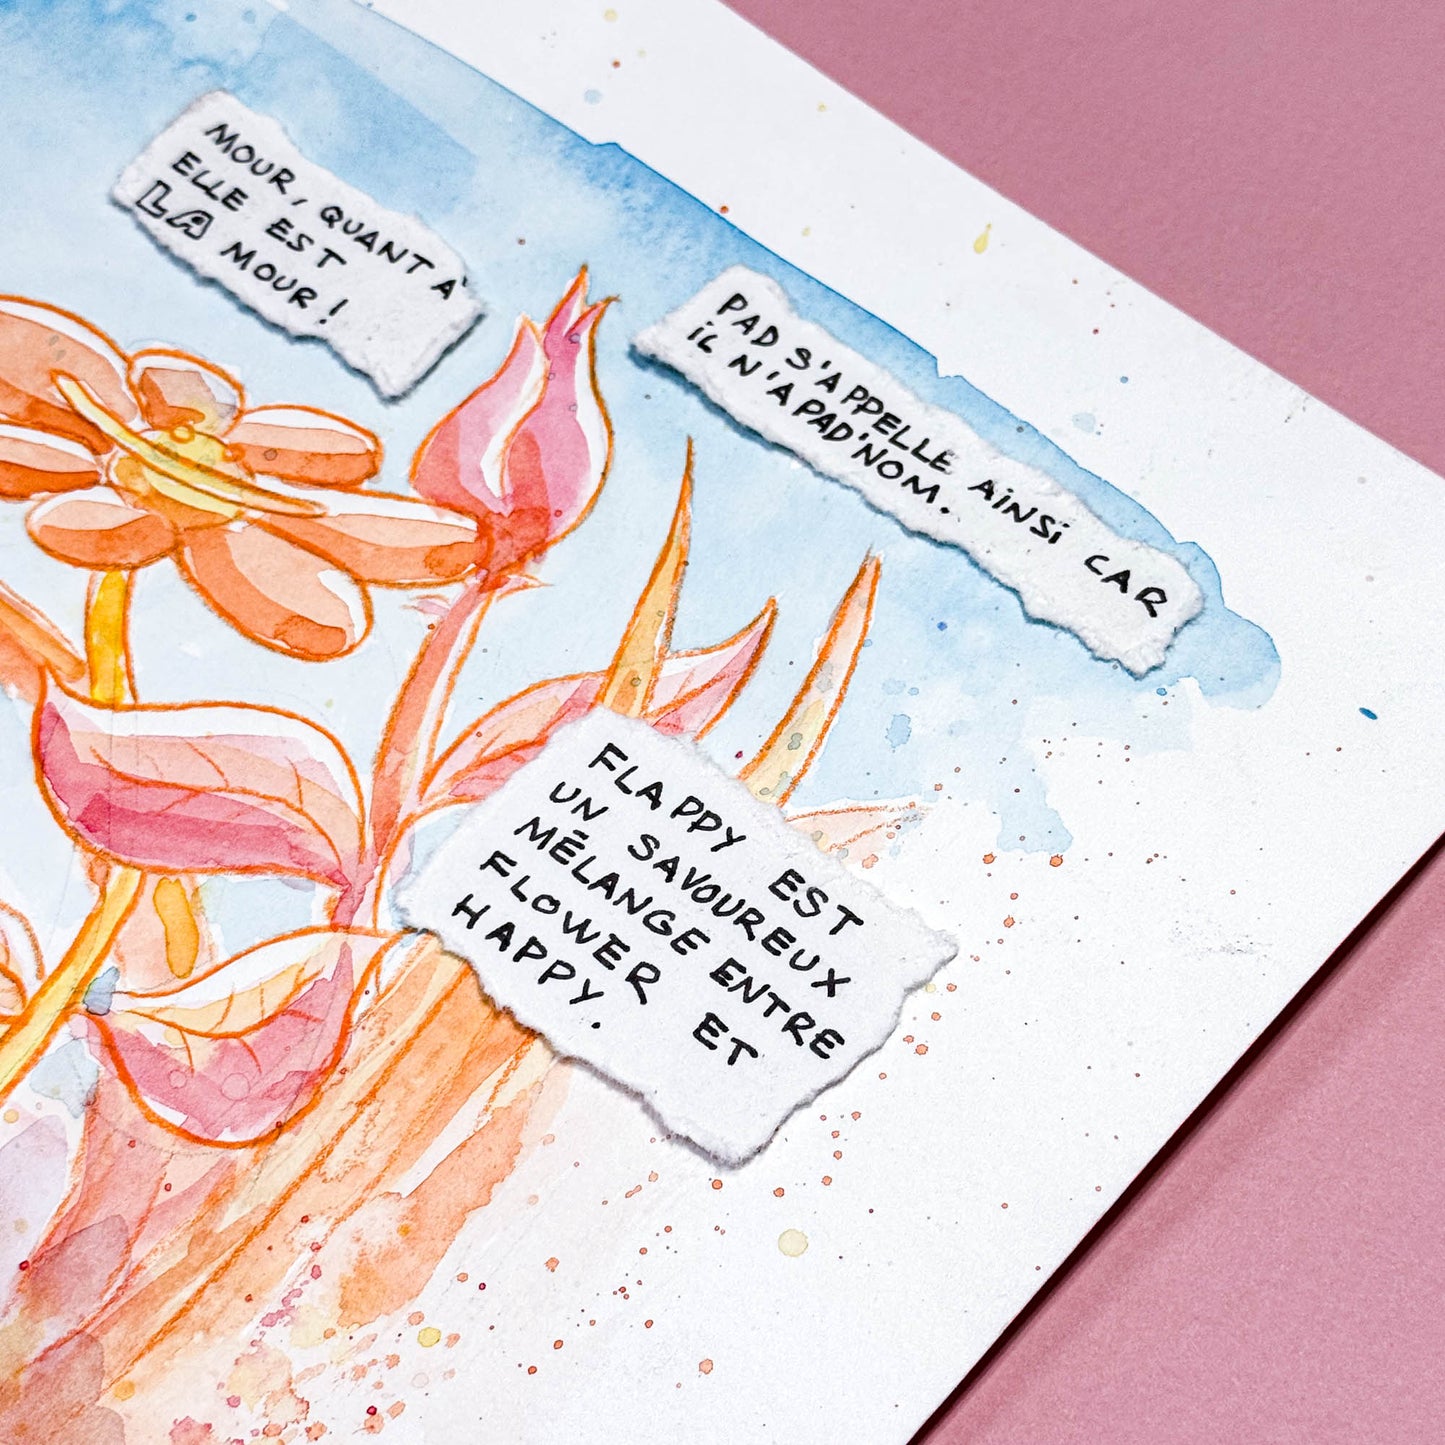 MOUR, QUANT À
ELLE EST
LA MOUR !
PAD S'APPELLE AINSI CAR
IL N'A PAD'NOM.
FLAPPY EST
UN SAVOUREUX
MÉLANGE ENTRE
FLOWER ET
HAPPY.